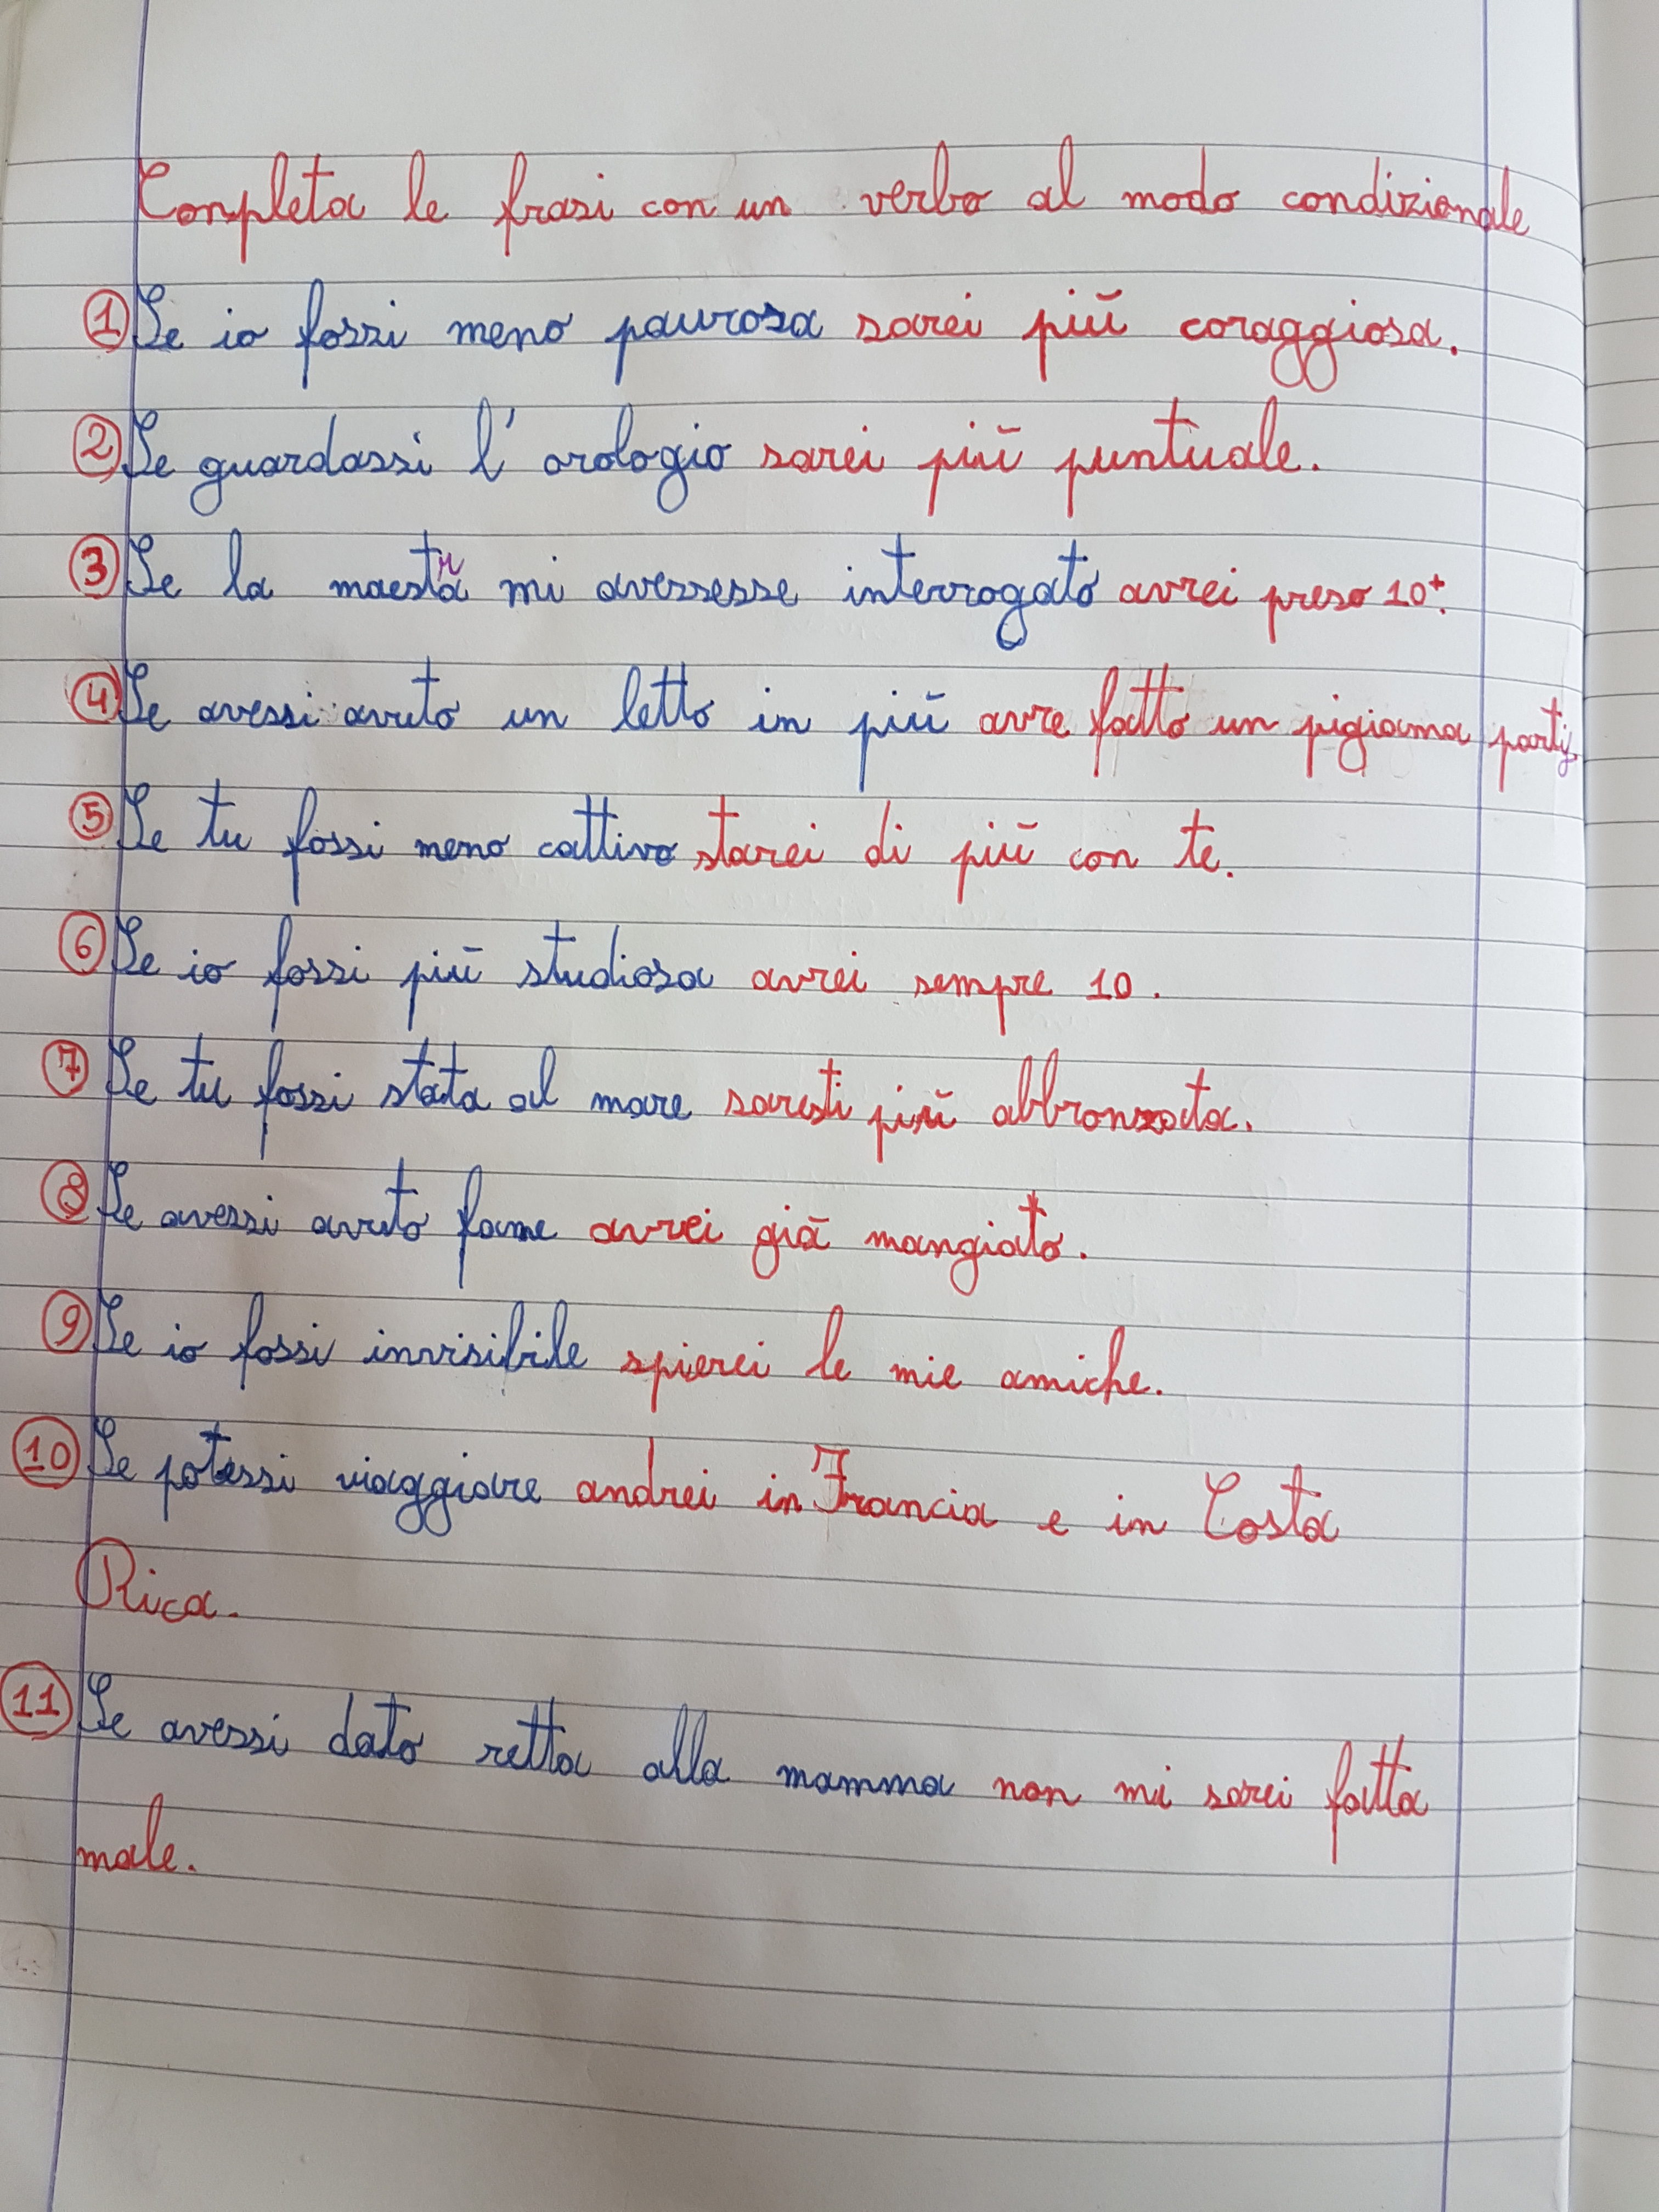 Completa le frasi con un verbo al modo condizionale
1 Se io fossi meno paurosa sarei più coraggiosa.
2 Se guardassi l'orologio sarei più puntuale.
3 Se la maestra mi avessesse interrogato avrei preso 10+.
4 Se avessi avuto un letto in più avre fatto un pigiama party.
5 Se tu fossi meno cattivo starei di più con te.
6 Se io fossi più studiosa avrei sempre 10.
7 Se tu fossi stata al mare saresti più abbronzata.
8 Se avessi avuto fame avrei già mangiato.
9 Se io fossi invisibile spierei le mie amiche.
10 Se potessi viaggiare andrei in Francia e in Costa
Rica.
11 Se avessi dato retta alla mamma non mi sarei fatta
male.